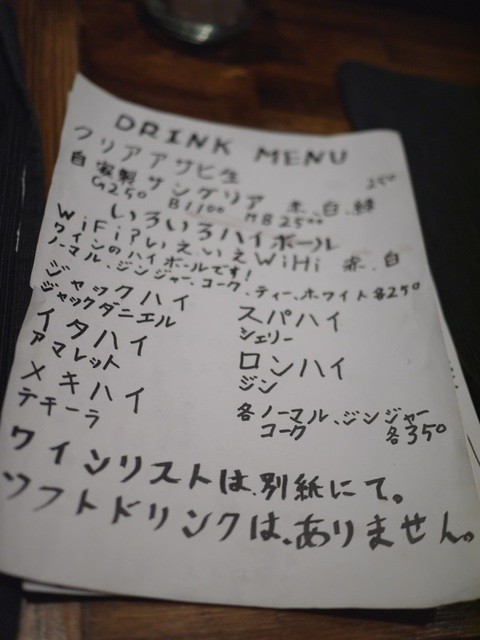 DRINK MENU
クリアアサヒ生 250
自家製サングリア 赤、白、緑
G250 B1100 MB2500
いろいろハイボール
WiFi?いえいえWiHi 赤、白
ワインのハイボールです!
ノーマル、ジンジャー、コーク、ティー、ホワイト各250
ジャックハイ
ジャックダニエル
イタハイ
アマレット
メキハイ
テキーラ
スパハイ
シェリー
ロンハイ
ジン
各ノーマル、ジンジャー
コーク 各350
ワインリストは、別紙にて。
ソフトドリンクは、ありません。